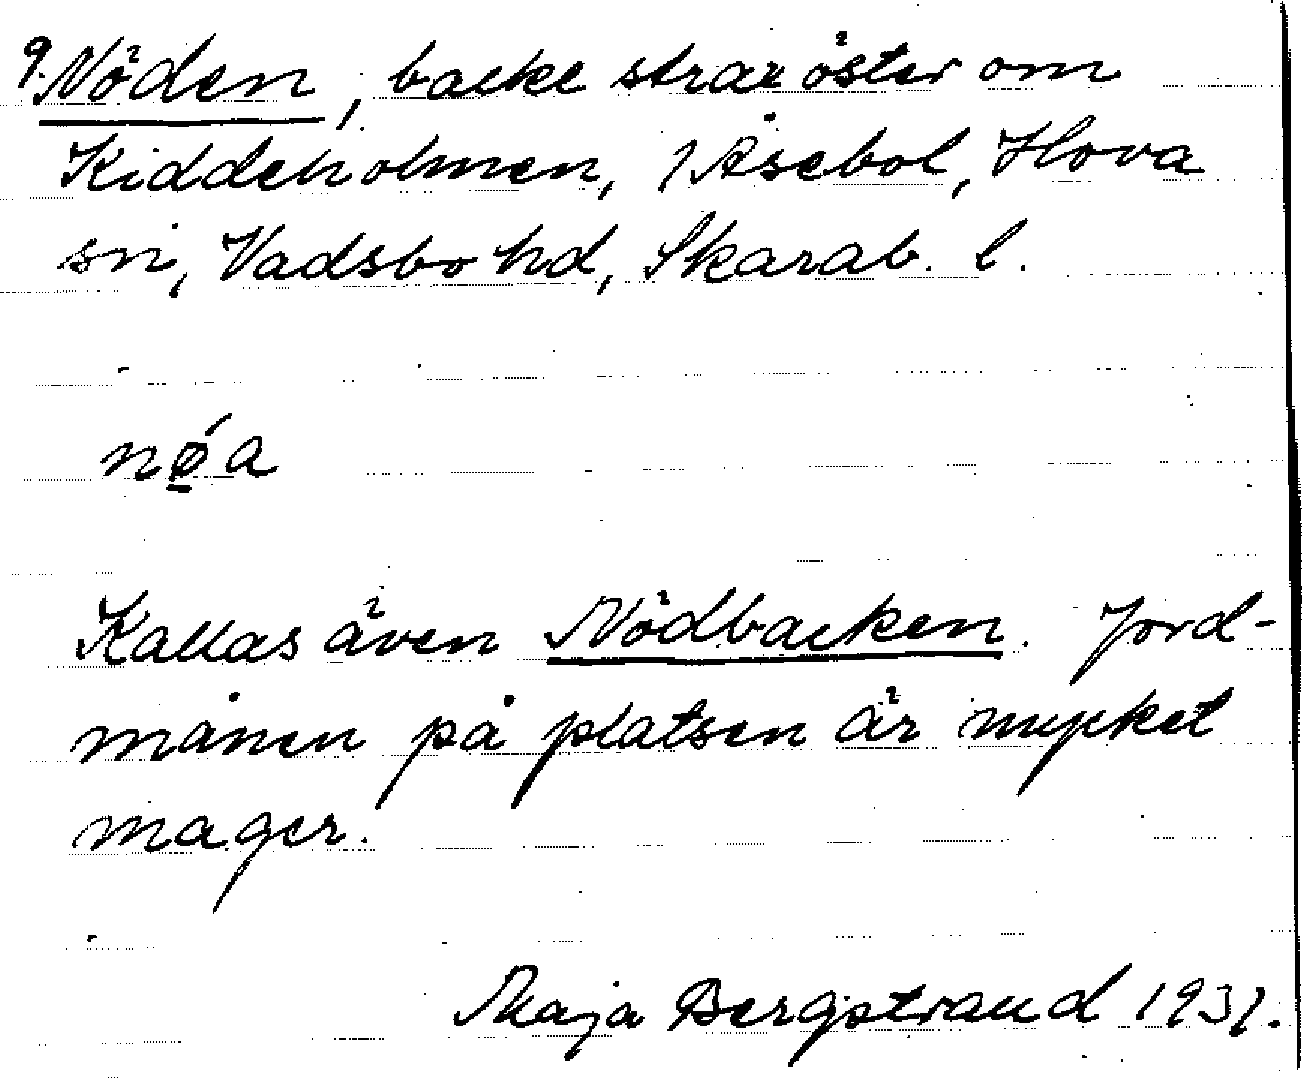 9. Nöden, backe strax öster om
Kiddeholmen, 1 Åsebol, Hova
sn, Vadsbo hd, Skarab. l.
nǿ̱a
Kallas även Nödbacken. Jord-
månen på platsen är mycket
mager.
Maja Bergstrand 1931.